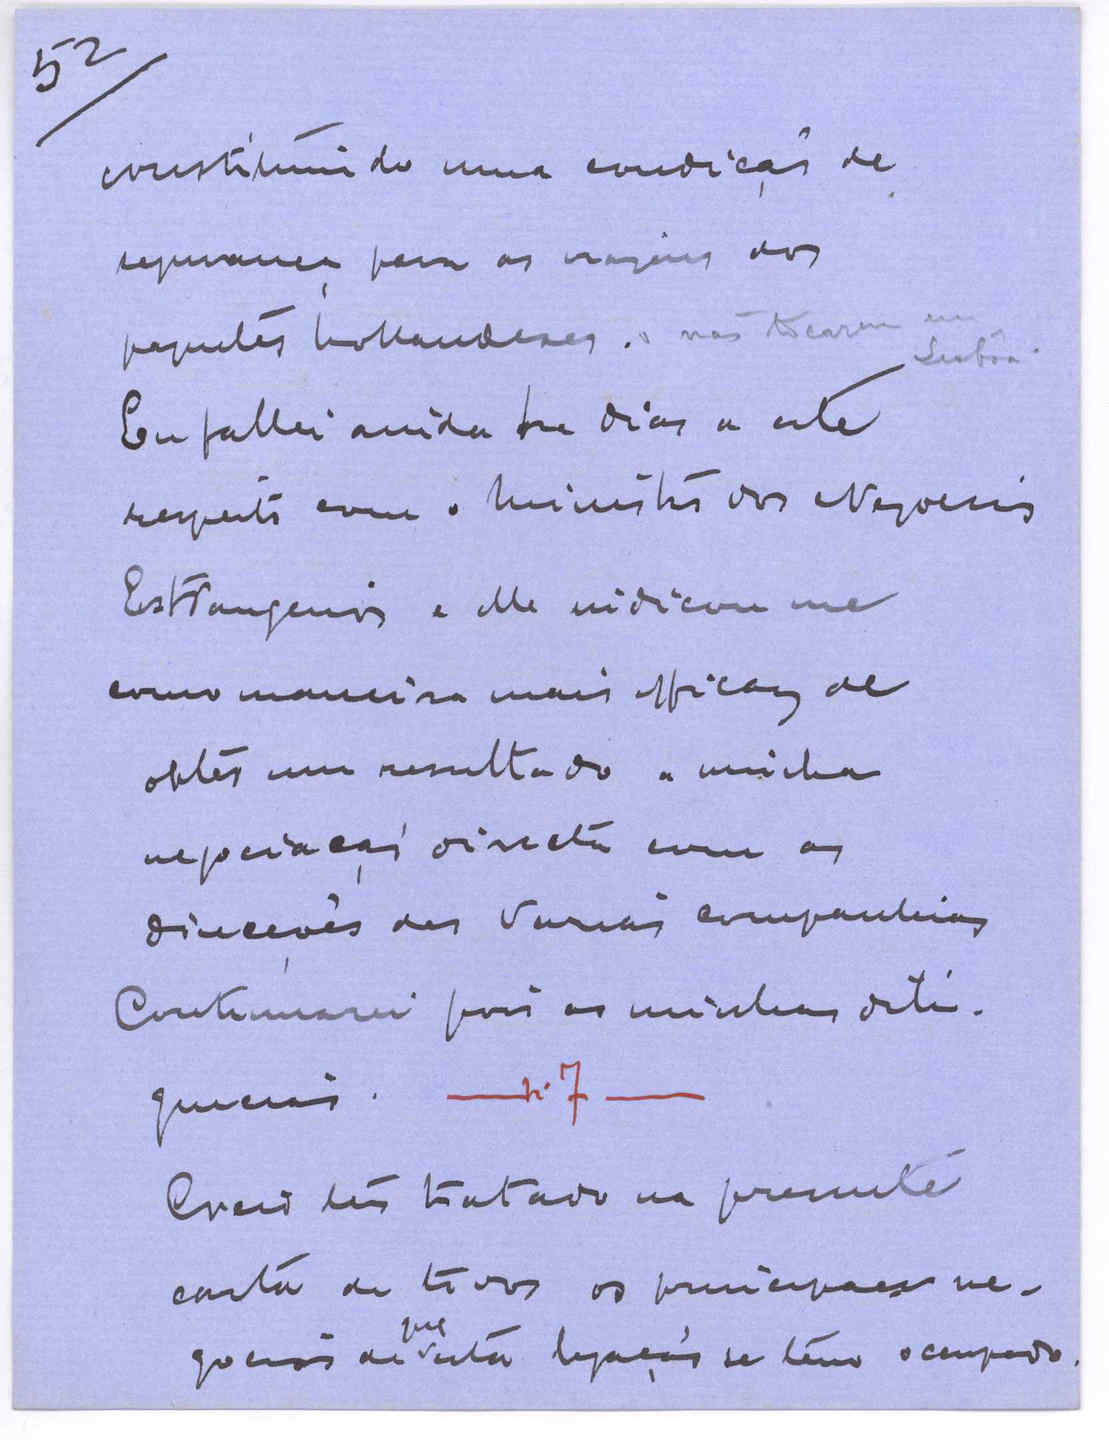 52
constituindo uma condição de
segurança para as viagens dos
paquetes hollandezes. o não tocarem em
Lisboa.
Eu fallei ainda ha dias a este
respeito com o Ministro dos Negocios
Estrangeiros e elle indicou me
como maneira mais efficaz de
obter um resultado a minha
negociação directa com as
direcções das varias companhias
Continuarei pois as minhas dili-
gencias. — nº 7 —
Creio ter tratado na presente
carta de todos os principaes ne-
que
gocios de esta legação se tem occupado.